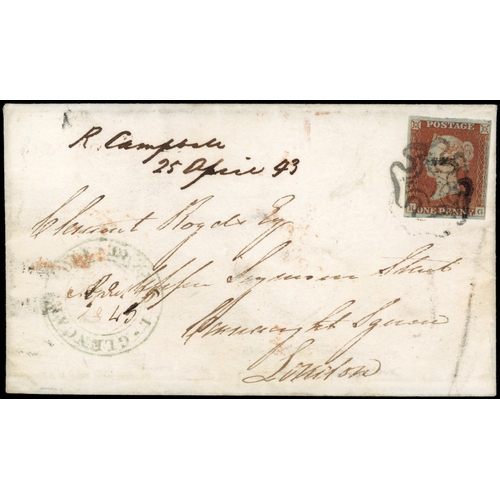 R. Campbell
25 April 43
POSTAGE
ONE PENNY
Clement Royds Esq
Upper Seymour Street
Connaught Square
London
1843